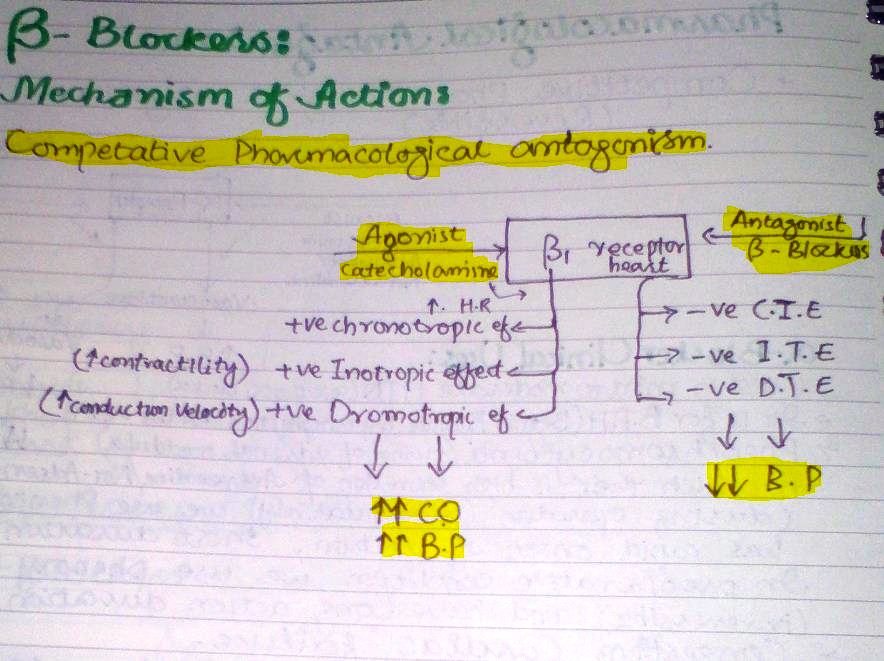 β- Blockers:
Mechanism of Actions
Competative Pharmacological antagonism.
Agonist
Catecholamine
β1 receptor
heart
Antagonist
β-Blockers
↑. H.R
+ve chronotropic ef
(↑contractility) +ve Inotropic effect
(↑conduction velocity) +ve Dromotropic ef
↑↑ C.O
↑↑ B.P
-ve C.I.E
-ve I.T.E
-ve D.T.E
↓↓ B.P